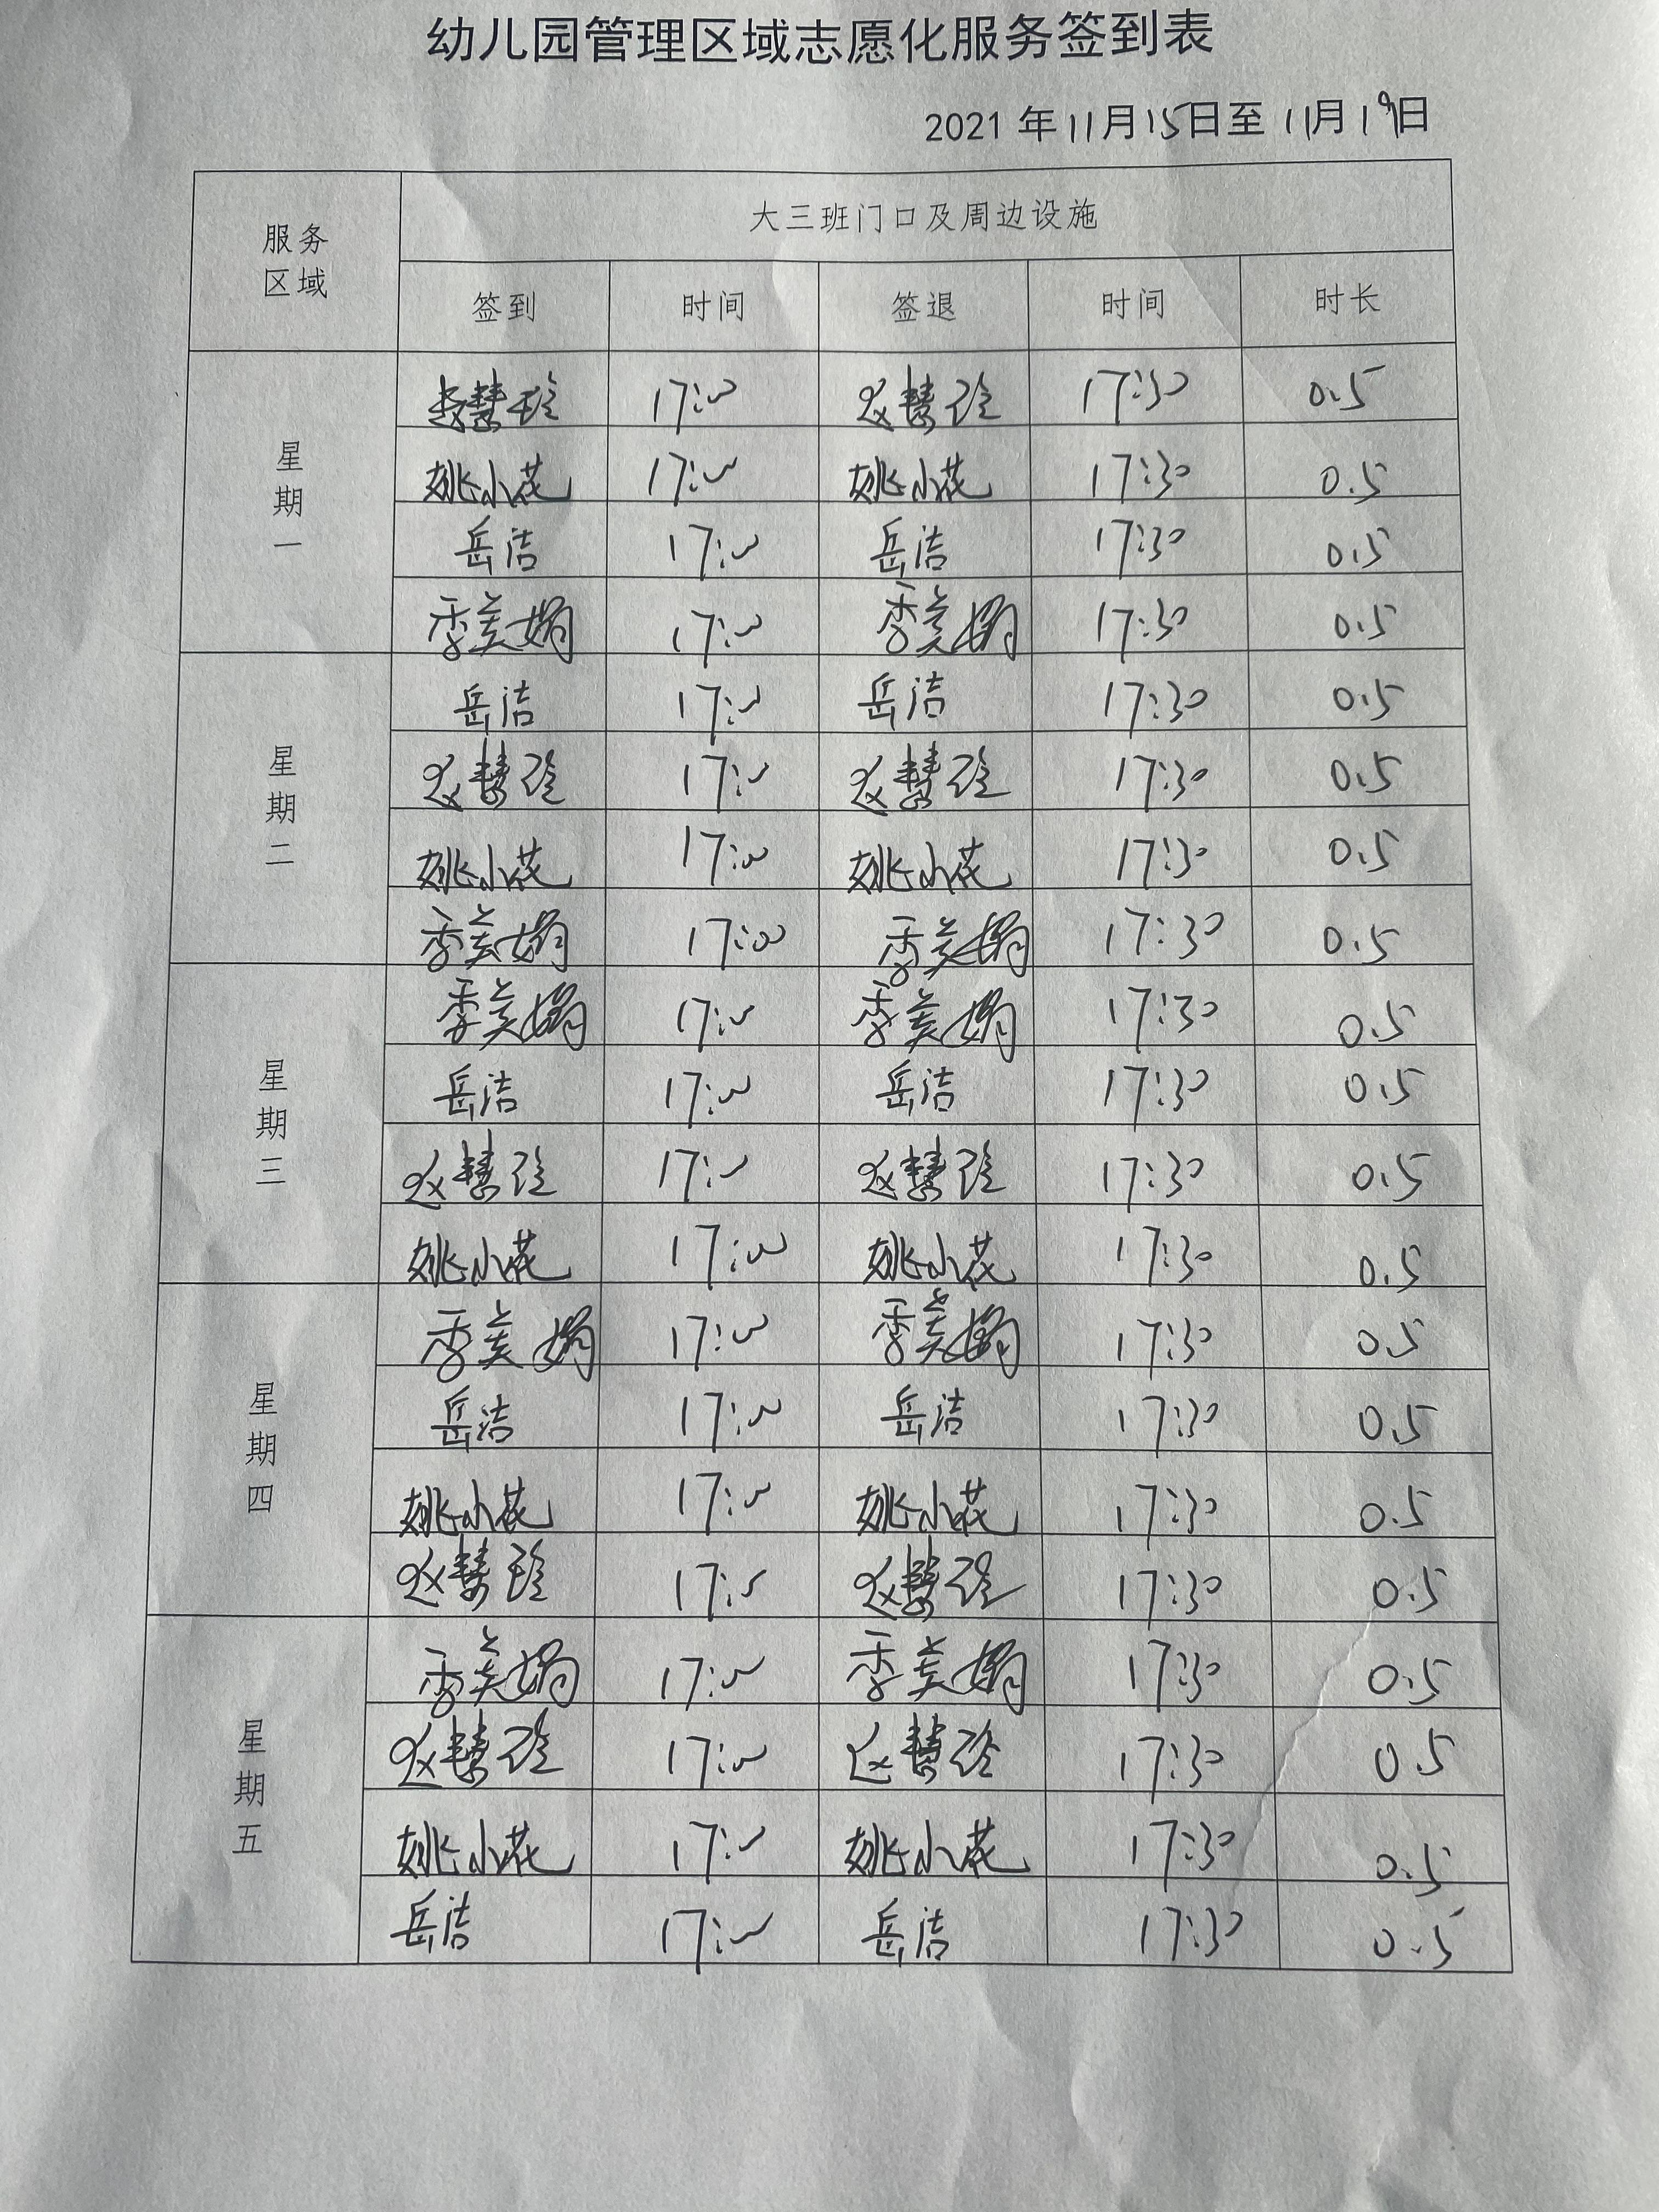 幼儿园管理区域志愿化服务签到表
2021 年 11月15日至 11月19日
服务区域 大三班门口及周边设施
签到 时间 签退 时间 时长
星期一
赵慧玲 17:00 赵慧玲 17:30 0.5
姚小花 17:00 姚小花 17:30 0.5
岳洁 17:00 岳洁 17:30 0.5
季美娟 17:00 季美娟 17:30 0.5
星期二
岳洁 17:00 岳洁 17:30 0.5
赵慧玲 17:00 赵慧玲 17:30 0.5
姚小花 17:00 姚小花 17:30 0.5
季美娟 17:00 季美娟 17:30 0.5
星期三
季美娟 17:00 季美娟 17:30 0.5
岳洁 17:00 岳洁 17:30 0.5
赵慧玲 17:00 赵慧玲 17:30 0.5
姚小花 17:00 姚小花 17:30 0.5
星期四
季美娟 17:00 季美娟 17:30 0.5
岳洁 17:00 岳洁 17:30 0.5
姚小花 17:00 姚小花 17:30 0.5
赵慧玲 17:00 赵慧玲 17:30 0.5
星期五
季美娟 17:00 季美娟 17:30 0.5
赵慧玲 17:00 赵慧玲 17:30 0.5
姚小花 17:00 姚小花 17:30 0.5
岳洁 17:00 岳洁 17:30 0.5